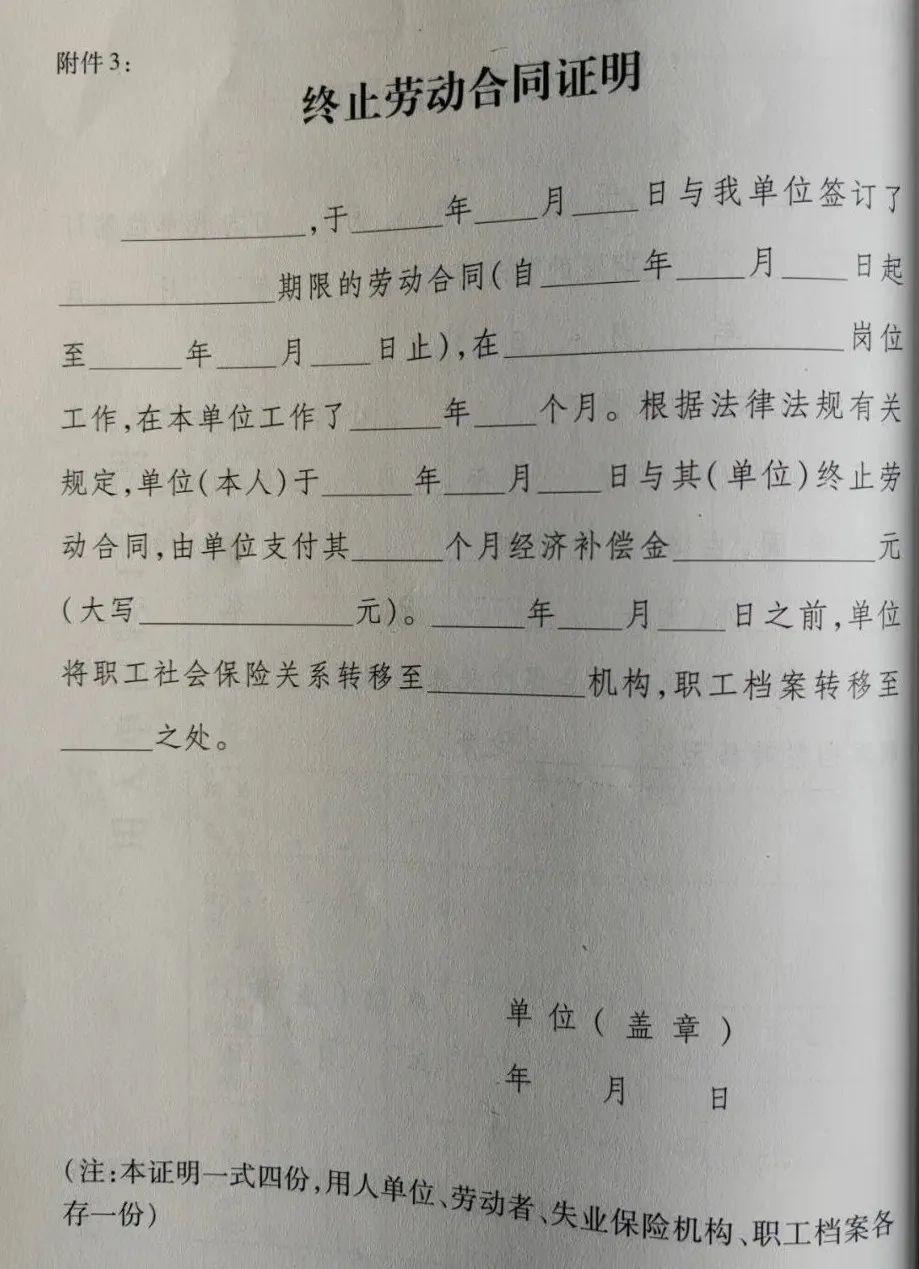 附件3:
终止劳动合同证明
__________,于_____年___月___日与我单位签订了
____________期限的劳动合同(自_____年___月___日起
至_____年___月___日止),在__________________岗位
工作,在本单位工作了_____年___个月。根据法律法规有关
规定,单位(本人)于_____年___月___日与其(单位)终止劳
动合同,由单位支付其_____个月经济补偿金___________元
(大写____________元)。_____年___月___日之前,单位
将职工社会保险关系转移至_________机构,职工档案转移至
_____之处。
单位(盖章)
年 月 日
(注:本证明一式四份,用人单位、劳动者、失业保险机构、职工档案各
存一份)